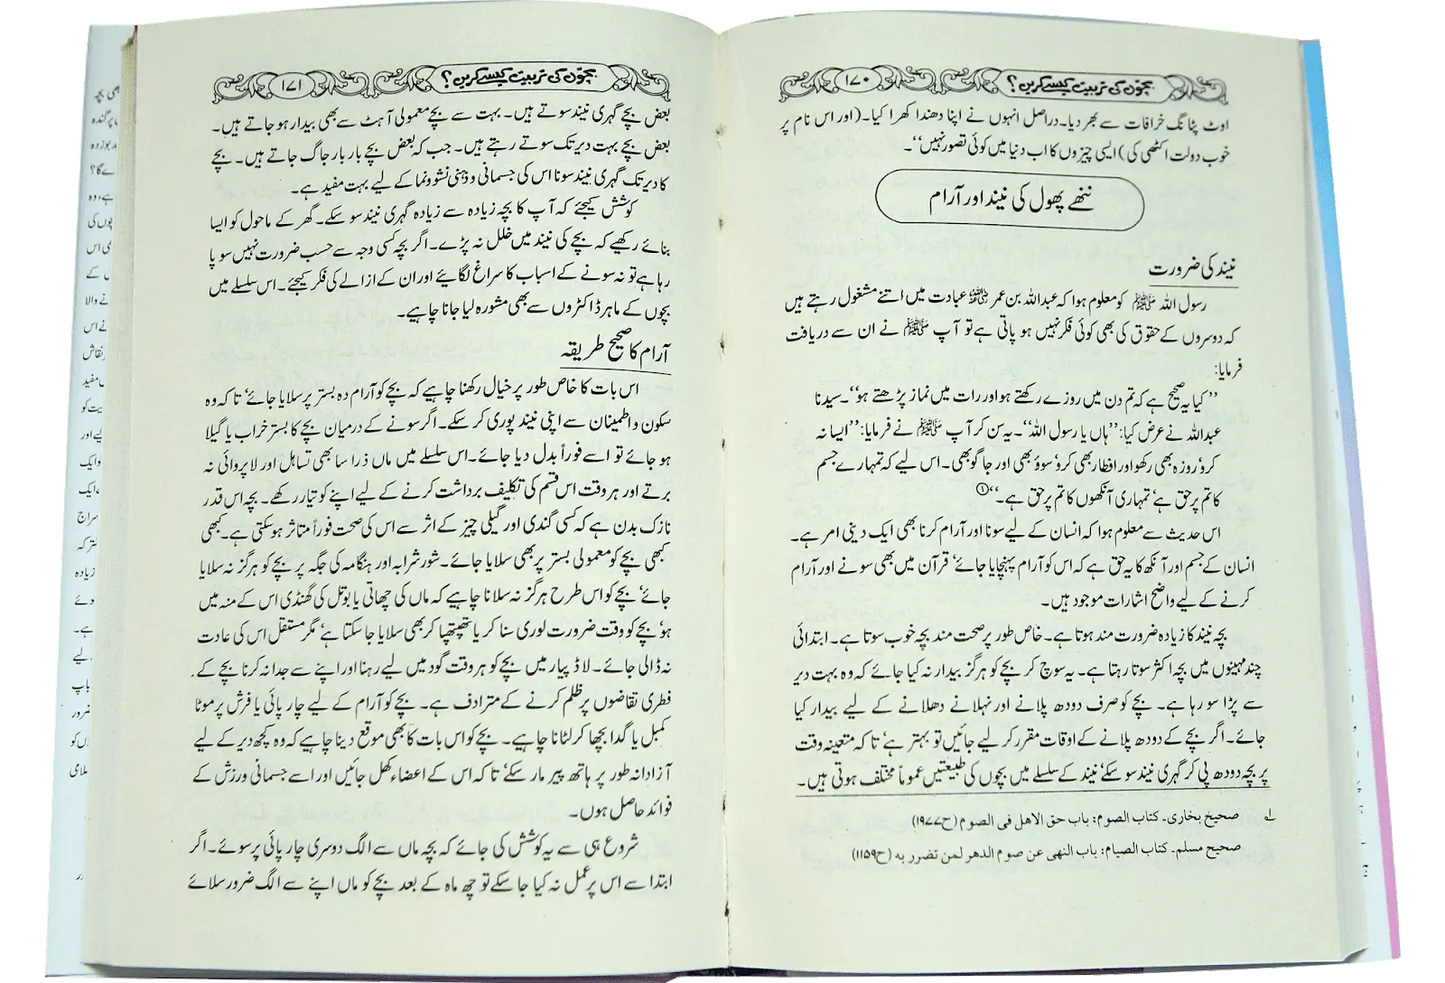 بچّوں کی تربیت کیسے کریں؟
۱۷۰
اوٹ پٹانگ خرافات سے بھر دیا۔ دراصل انہوں نے اپنا دھندا کھرا کیا۔ (اور اس نام پر
خوب دولت اکٹھی کی) ایسی چیزوں کا اب دنیا میں کوئی تصور نہیں‘‘۔
ننھے پھول کی نیند اور آرام
نیند کی ضرورت
رسول اللہ ﷺ کو معلوم ہوا کہ عبداللہ بن عمر ﷺ عبادت میں اتنے مشغول رہتے ہیں
کہ دوسروں کے حقوق کی بھی کوئی فکر نہیں ہو پاتی ہے تو آپ ﷺ نے ان سے دریافت
فرمایا:
’’کیا یہ صحیح ہے کہ تم دن میں روزے رکھتے ہو اور رات میں نماز پڑھتے ہو‘‘۔ سیدنا
عبداللہ نے عرض کیا: ’’ہاں یا رسول اللہ‘‘۔ یہ سن کر آپ ﷺ نے فرمایا: ’’ایسا نہ
کرو‘ روزہ بھی رکھو اور افطار بھی کرو‘ سوؤ بھی اور جاگو بھی۔ اس لیے کہ تمہارے جسم
کا تم پر حق ہے‘ تمہاری آنکھوں کا تم پر حق ہے۔‘‘①
اس حدیث سے معلوم ہوا کہ انسان کے لیے سونا اور آرام کرنا بھی ایک دینی امر ہے۔
انسان کے جسم اور آنکھ کا یہ حق ہے کہ اس کو آرام پہنچایا جائے‘ قرآن میں بھی سونے اور آرام
کرنے کے لیے واضح اشارات موجود ہیں۔
بچہ نیند کا زیادہ ضرورت مند ہوتا ہے۔ خاص طور پر صحت مند بچہ خوب سوتا ہے۔ ابتدائی
چند مہینوں میں بچہ اکثر سوتا رہتا ہے۔ یہ سوچ کر بچے کو ہرگز بیدار نہ کیا جائے کہ وہ بہت دیر
سے پڑا سو رہا ہے۔ بچے کو صرف دودھ پلانے اور نہلانے دھلانے کے لیے بیدار کیا
جائے۔ اگر بچے کے دودھ پلانے کے اوقات مقرر کر لیے جائیں تو بہتر ہے‘ تا کہ متعینہ وقت
پر بچہ دودھ پی کر گہری نیند سو سکے‘ نیند کے سلسلے میں بچوں کی طبیعتیں عموماً مختلف ہوتی ہیں۔
لے صحیح بخاری۔ کتاب الصوم: باب حق الاھل فی الصوم (ح۱۹۷۷)
صحیح مسلم۔ کتاب الصیام: باب النھی عن صوم الدھر لمن تضرر بہ (ح۱۱۵۹)
بچّوں کی تربیت کیسے کریں؟
۱۷۱
بعض بچے گہری نیند سوتے ہیں۔ بہت سے بچے معمولی آہٹ سے بھی بیدار ہو جاتے ہیں۔
بعض بچے بہت دیر تک سوتے رہتے ہیں۔ جب کہ بعض بچے بار بار جاگ جاتے ہیں۔ بچے
کا دیر تک گہری نیند سونا اس کی جسمانی و ذہنی نشوونما کے لیے بہت مفید ہے۔
کوشش کیجئے کہ آپ کا بچہ زیادہ سے زیادہ گہری نیند سو سکے۔ گھر کے ماحول کو ایسا
بنائے رکھیے کہ بچے کی نیند میں خلل نہ پڑے۔ اگر بچہ کسی وجہ سے حسب ضرورت نہیں سو پا
رہا ہے تو نہ سونے کے اسباب کا سراغ لگائیے اور ان کے ازالے کی فکر کیجئے۔ اس سلسلے میں
بچوں کے ماہر ڈاکٹروں سے بھی مشورہ لیا جانا چاہیے۔
آرام کا صحیح طریقہ
اس بات کا خاص طور پر خیال رکھنا چاہیے کہ بچے کو آرام دہ بستر پر سلایا جائے‘ تا کہ وہ
سکون و اطمینان سے اپنی نیند پوری کر سکے۔ اگر سونے کے درمیان بچے کا بستر خراب یا گیلا
ہو جائے تو اسے فوراً بدل دیا جائے۔ اس سلسلے میں ماں ذرا سا بھی تساہل اور لا پروائی نہ
برتے اور ہر وقت اس قسم کی تکلیف برداشت کرنے کے لیے اپنے کو تیار رکھے۔ بچہ اس قدر
نازک بدن ہے کہ کسی گندی اور گیلی چیز کے اثر سے اس کی صحت فوراً متاثر ہو سکتی ہے۔ کبھی
کبھی بچے کو معمولی بستر پر بھی سلایا جائے۔ شور شرابہ اور ہنگامہ کی جگہ پر بچے کو ہرگز نہ سلایا
جائے‘ بچے کو اس طرح ہرگز نہ سلانا چاہیے کہ ماں کی چھاتی یا بوتل کی گھنڈی اس کے منہ میں
ہو‘ بچے کو وقت ضرورت لوری سنا کر یا تھپتھپا کر بھی سلایا جا سکتا ہے‘ مگر مستقل اس کی عادت
نہ ڈالی جائے۔ لاڈ پیار میں بچے کو ہر وقت گود میں لیے رہنا اور اپنے سے جدا نہ کرنا بچے کے
فطری تقاضوں پر ظلم کرنے کے مترادف ہے۔ بچے کو آرام کے لیے چار پائی یا فرش پر موٹا
کمبل یا گدا بچھا کر لٹانا چاہیے۔ بچے کو اس بات کا بھی موقع دینا چاہیے کہ وہ کچھ دیر کے لیے
آزادانہ طور پر ہاتھ پیر مار سکے‘ تا کہ اس کے اعضاء کھل جائیں اور اسے جسمانی ورزش کے
فوائد حاصل ہوں۔
شروع ہی سے یہ کوشش کی جائے کہ بچہ ماں سے الگ دوسری چار پائی پر سوئے۔ اگر
ابتدا سے اس پر عمل نہ کیا جا سکے تو چھ ماہ کے بعد بچے کو ماں اپنے سے الگ ضرور سلائے